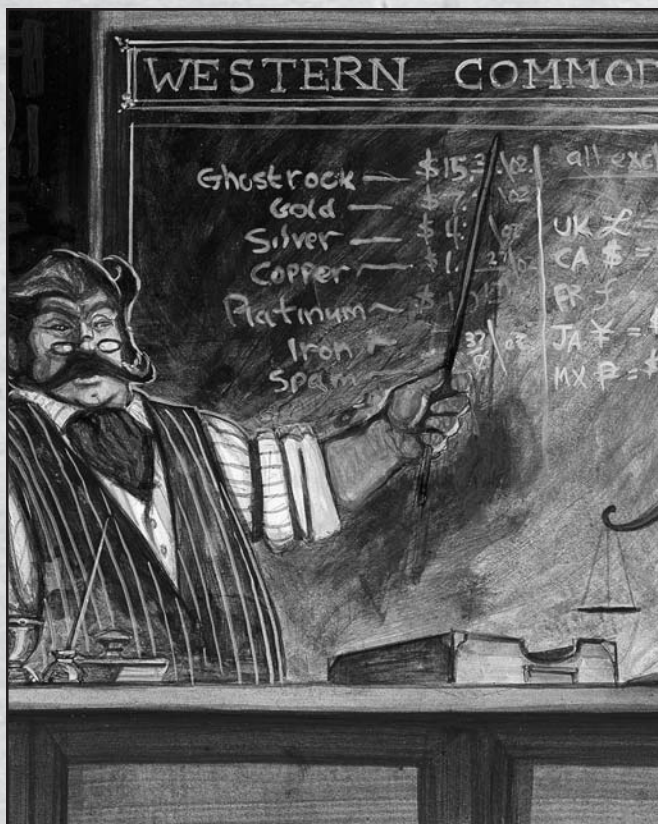 WESTERN COMMOD
Ghostrock — $15.3 \oz.
Gold — $7. \oz
Silver — $4. \oz
Copper — $1. 27\oz
Platinum ~ $
Iron
Spam 37 ¢ \oz
all excl
UK £ =
CA $ =
FR ƒ
JA ¥ = $
MX P = $